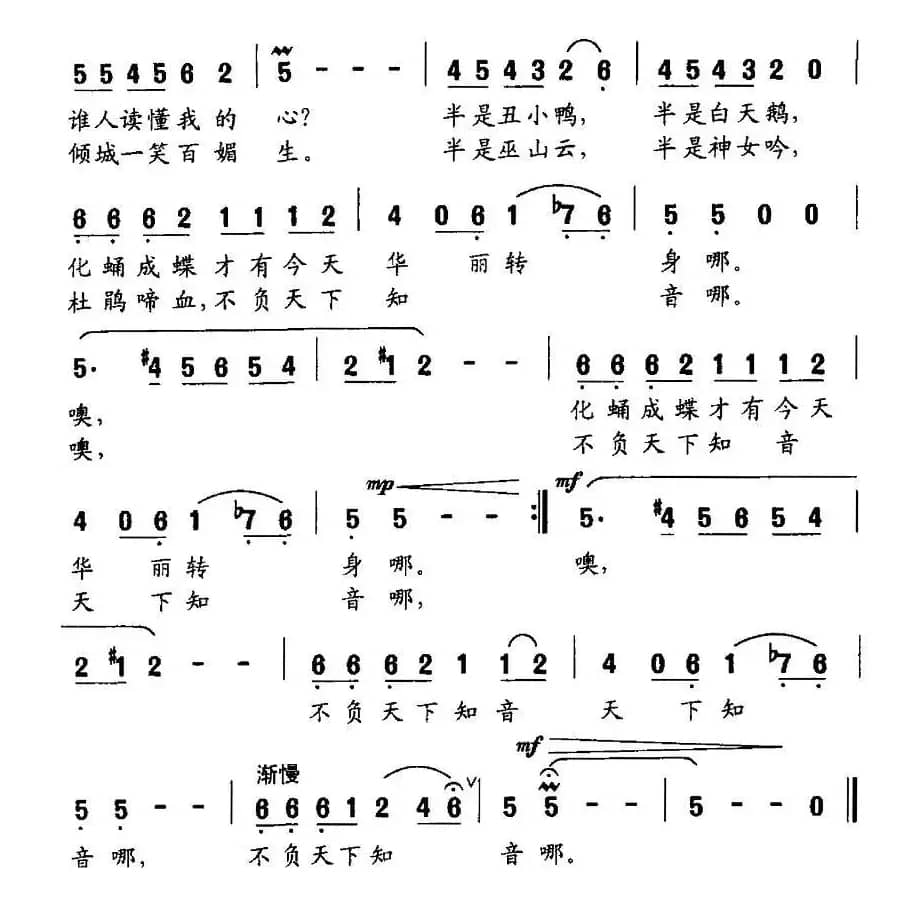 5 5 4 5 6 2 | 5 - - - | 4 5 4 3 2 6 | 4 5 4 3 2 0 |
谁人读懂我的 心? 半是丑小鸭, 半是白天鹅,
倾城一笑百媚 生。 半是巫山云, 半是神女吟,
6 6 6 2 1 1 1 2 | 4 0 6 1 ♭7 6 | 5 5 0 0 |
化蛹成蝶才有今天 华 丽转 身哪。
杜鹃啼血,不负天下 知 音哪。
5· #4 5 6 5 4 | 2 #1 2 - - | 6 6 6 2 1 1 1 2 |
噢, 化蛹成蝶才有今天
噢, 不负天下知 音
mp mf
4 0 6 1 ♭7 6 | 5 5 - - :‖ 5· #4 5 6 5 4 |
华 丽转 身哪。 噢,
天 下知 音哪,
2 #1 2 - - | 6 6 6 2 1 1 2 | 4 0 6 1 ♭7 6 |
不负天下知音 天 下知
mf
渐慢
5 5 - - | 6 6 6 1 2 4 6 ∨ | 5 5 - - | 5 - - 0 ‖
音哪, 不负天下知 音哪。